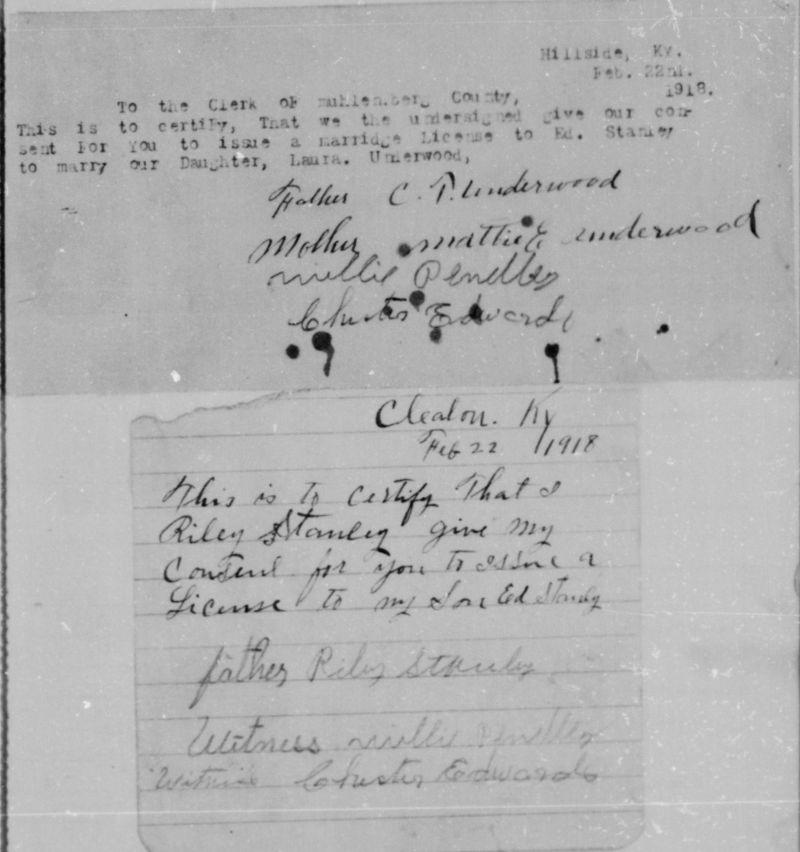 Hillside, Ky.
Feb. 22nd.
1918.
To the Clerk oF muhlenberg County,
This is to certify, That we the undersigned give our con-
sent For You to issue a marridge License to Ed. Stanley
to marry our Daughter, Laura. Underwood,
Father C. P. Underwood
Mother mattie E underwood
millie Pendley
Chester Edwards
Cleaton. Ky
Feb 22 1918
This is to certify That I
Riley Stanley give my
Consent for you to issue a
License to my Son Ed Stanley
father Riley Stanley
Witness millie Pendley
Witness Chester Edwards